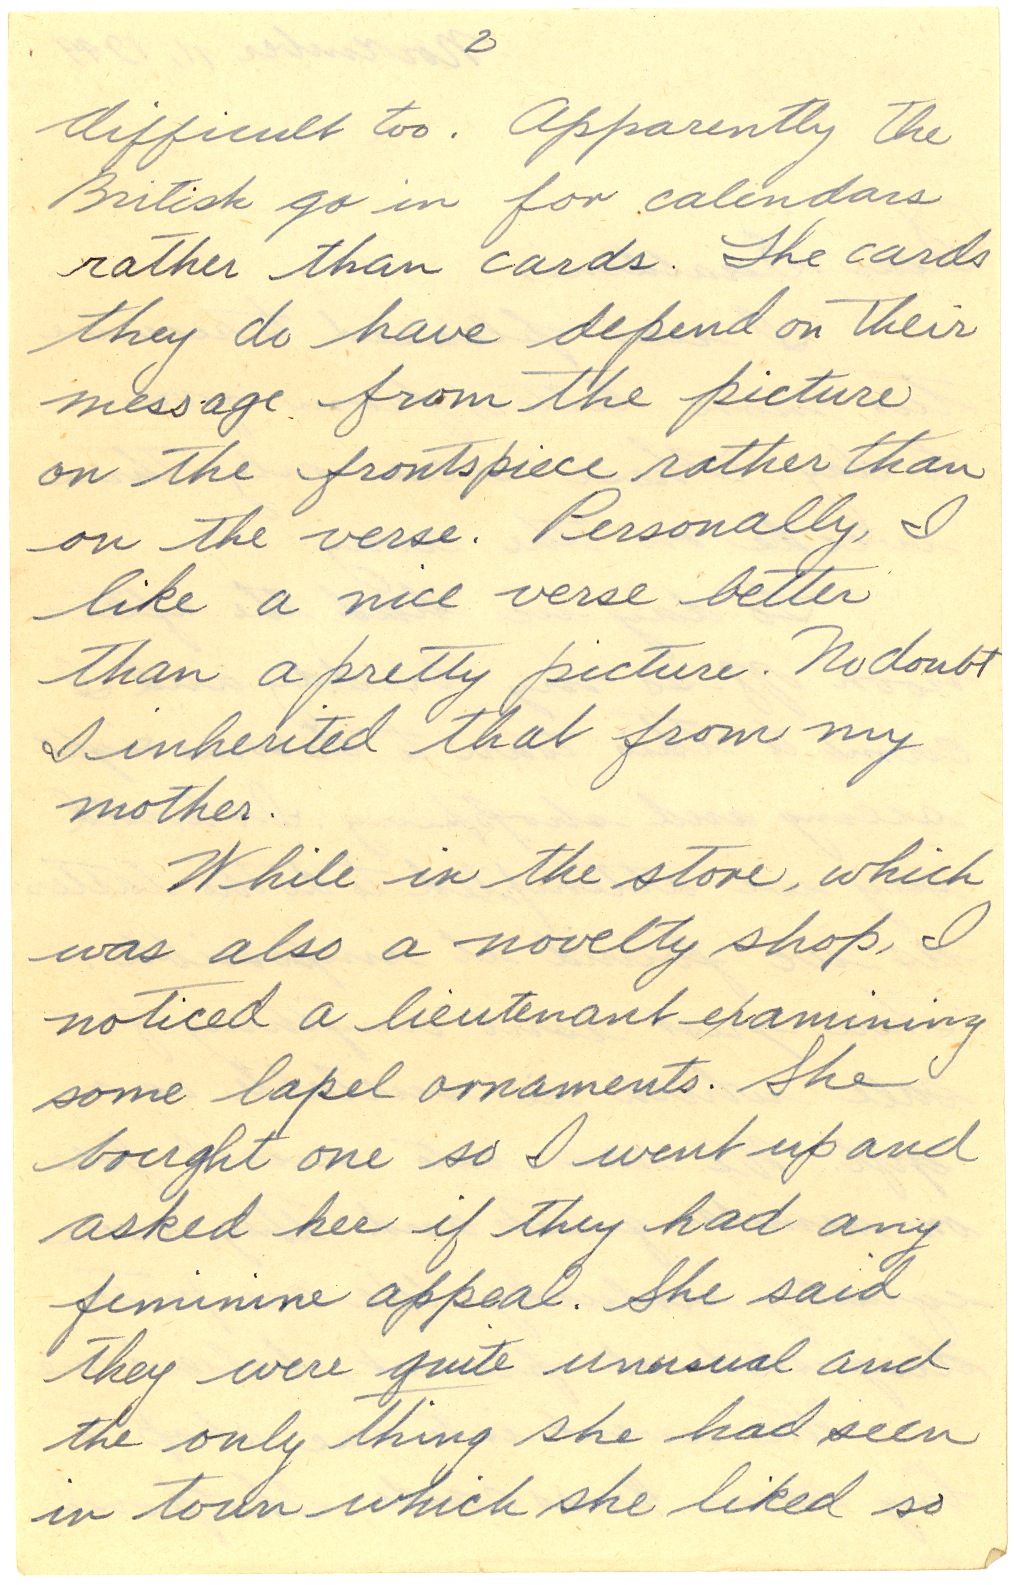 2
difficult too. Apparently the
British go in for calendars
rather than cards. The cards
they do have depend on their
message from the picture
on the frontspiece rather than
on the verse. Personally, I
like a nice verse better
than a pretty picture. No doubt
I inherited that from my
mother.
While in the store, which
was also a novelty shop, I
noticed a lieutenant examining
some lapel ornaments. She
bought one so I went up and
asked her if they had any
feminine appeal. She said
they were quite unusual and
the only thing she had seen
in town which she liked so